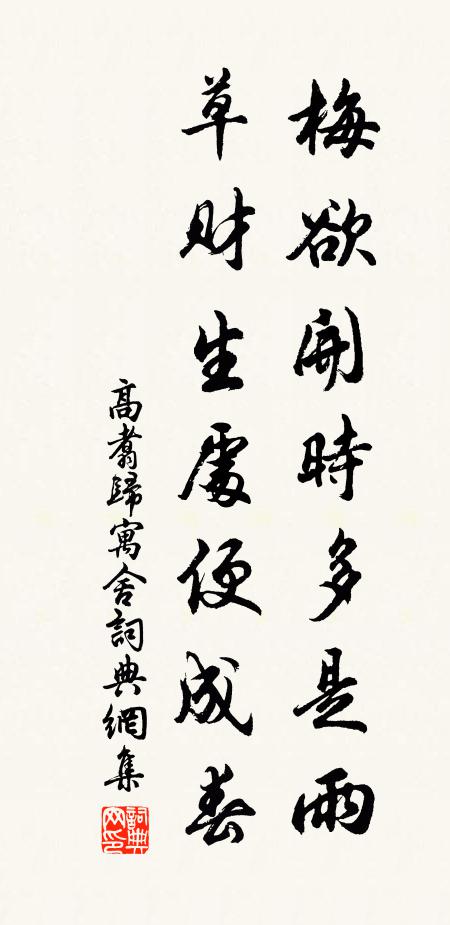 梅欲開時多是雨
草財生處便成春
高翥歸寓舍詞典網集
詞典
网印